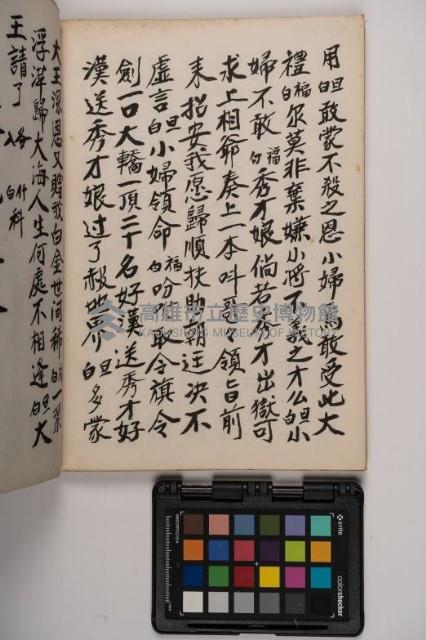 用旦敢蒙不殺之恩小婦焉敢受此大
禮白福尔莫非棄嫌小將不義之才么旦小
婦不敢白福秀才娘倘若秀才出獄可
求上相爺奏上一本叫哥々領旨前
來招安我愿歸順扶助朝廷决不
虛言白旦小婦領命白福吩咐取令旗令
劍一口大轎一頂二十名好漢送秀才好
漢送秀才娘過了殺 界旦多蒙
大王深恩又賜我白金世间稀白福一葉
浮萍歸大海人生何處不相逢白旦大
王請了
各 什科
入 白
高雄市立歷史博物館
KAOHSIUNG MUSEUM OF HISTORY
x-rite
colorchecker